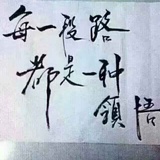 每一段路
都是一种
领悟